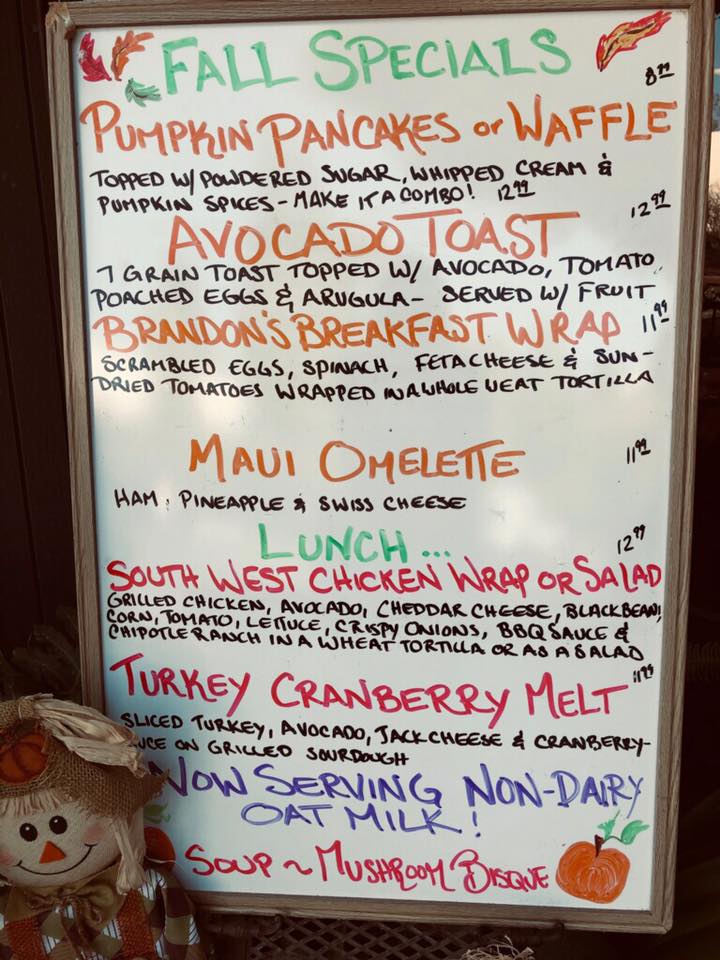 FALL SPECIALS
8.99
PUMPKIN PANCAKES or WAFFLE
TOPPED W/ POWDERED SUGAR, WHIPPED CREAM &
PUMPKIN SPICES - MAKE IT A COMBO! 12.99
12.99
AVOCADO TOAST
7 GRAIN TOAST TOPPED W/ AVOCADO, TOMATO,
POACHED EGGS & ARUGULA - SERVED W/ FRUIT
BRANDON'S BREAKFAST WRAP 11.99
SCRAMBLED EGGS, SPINACH, FETA CHEESE & SUN-
DRIED TOMATOES WRAPPED IN A WHOLE WEAT TORTILLA
MAUI OMELETTE 11.99
HAM, PINEAPPLE & SWISS CHEESE
LUNCH... 12.99
SOUTH WEST CHICKEN WRAP OR SALAD
GRILLED CHICKEN, AVOCADO, CHEDDAR CHEESE, BLACK BEAN,
CORN, TOMATO, LETTUCE, CRISPY ONIONS, BBQ SAUCE &
CHIPOTLE RANCH IN A WHEAT TORTILLA OR AS A SALAD
TURKEY CRANBERRY MELT 11.99
SLICED TURKEY, AVOCADO, JACK CHEESE & CRANBERRY-
UCE ON GRILLED SOURDOUGH
NOW SERVING NON-DAIRY
OAT MILK!
SOUP ~ MUSHROOM BISQUE